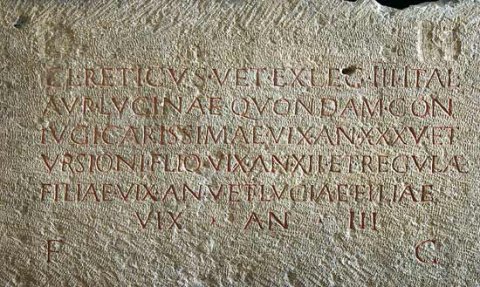 CL RETICVS · VET EX LEG · III ITAL
AVR LVCINAE · QVONDAM · CON
IVGI CARISSIMAE VIX · AN · XXXV ET
VRSIONI FILIO · VIX · AN · XII · ET REGVLAE
FILIAE VIX · AN · V ET LVCIAE FILIAE
VIX · AN · III
F C